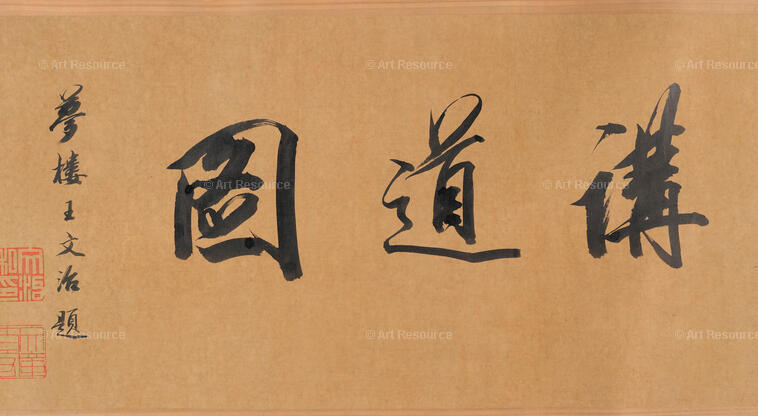 講道圖
夢樓王文治題
© Art Resource
© Art Resource
© Art Resource
© Art Resource
© Art Resource
© Art Resource
© Art Resource
© Art Resource